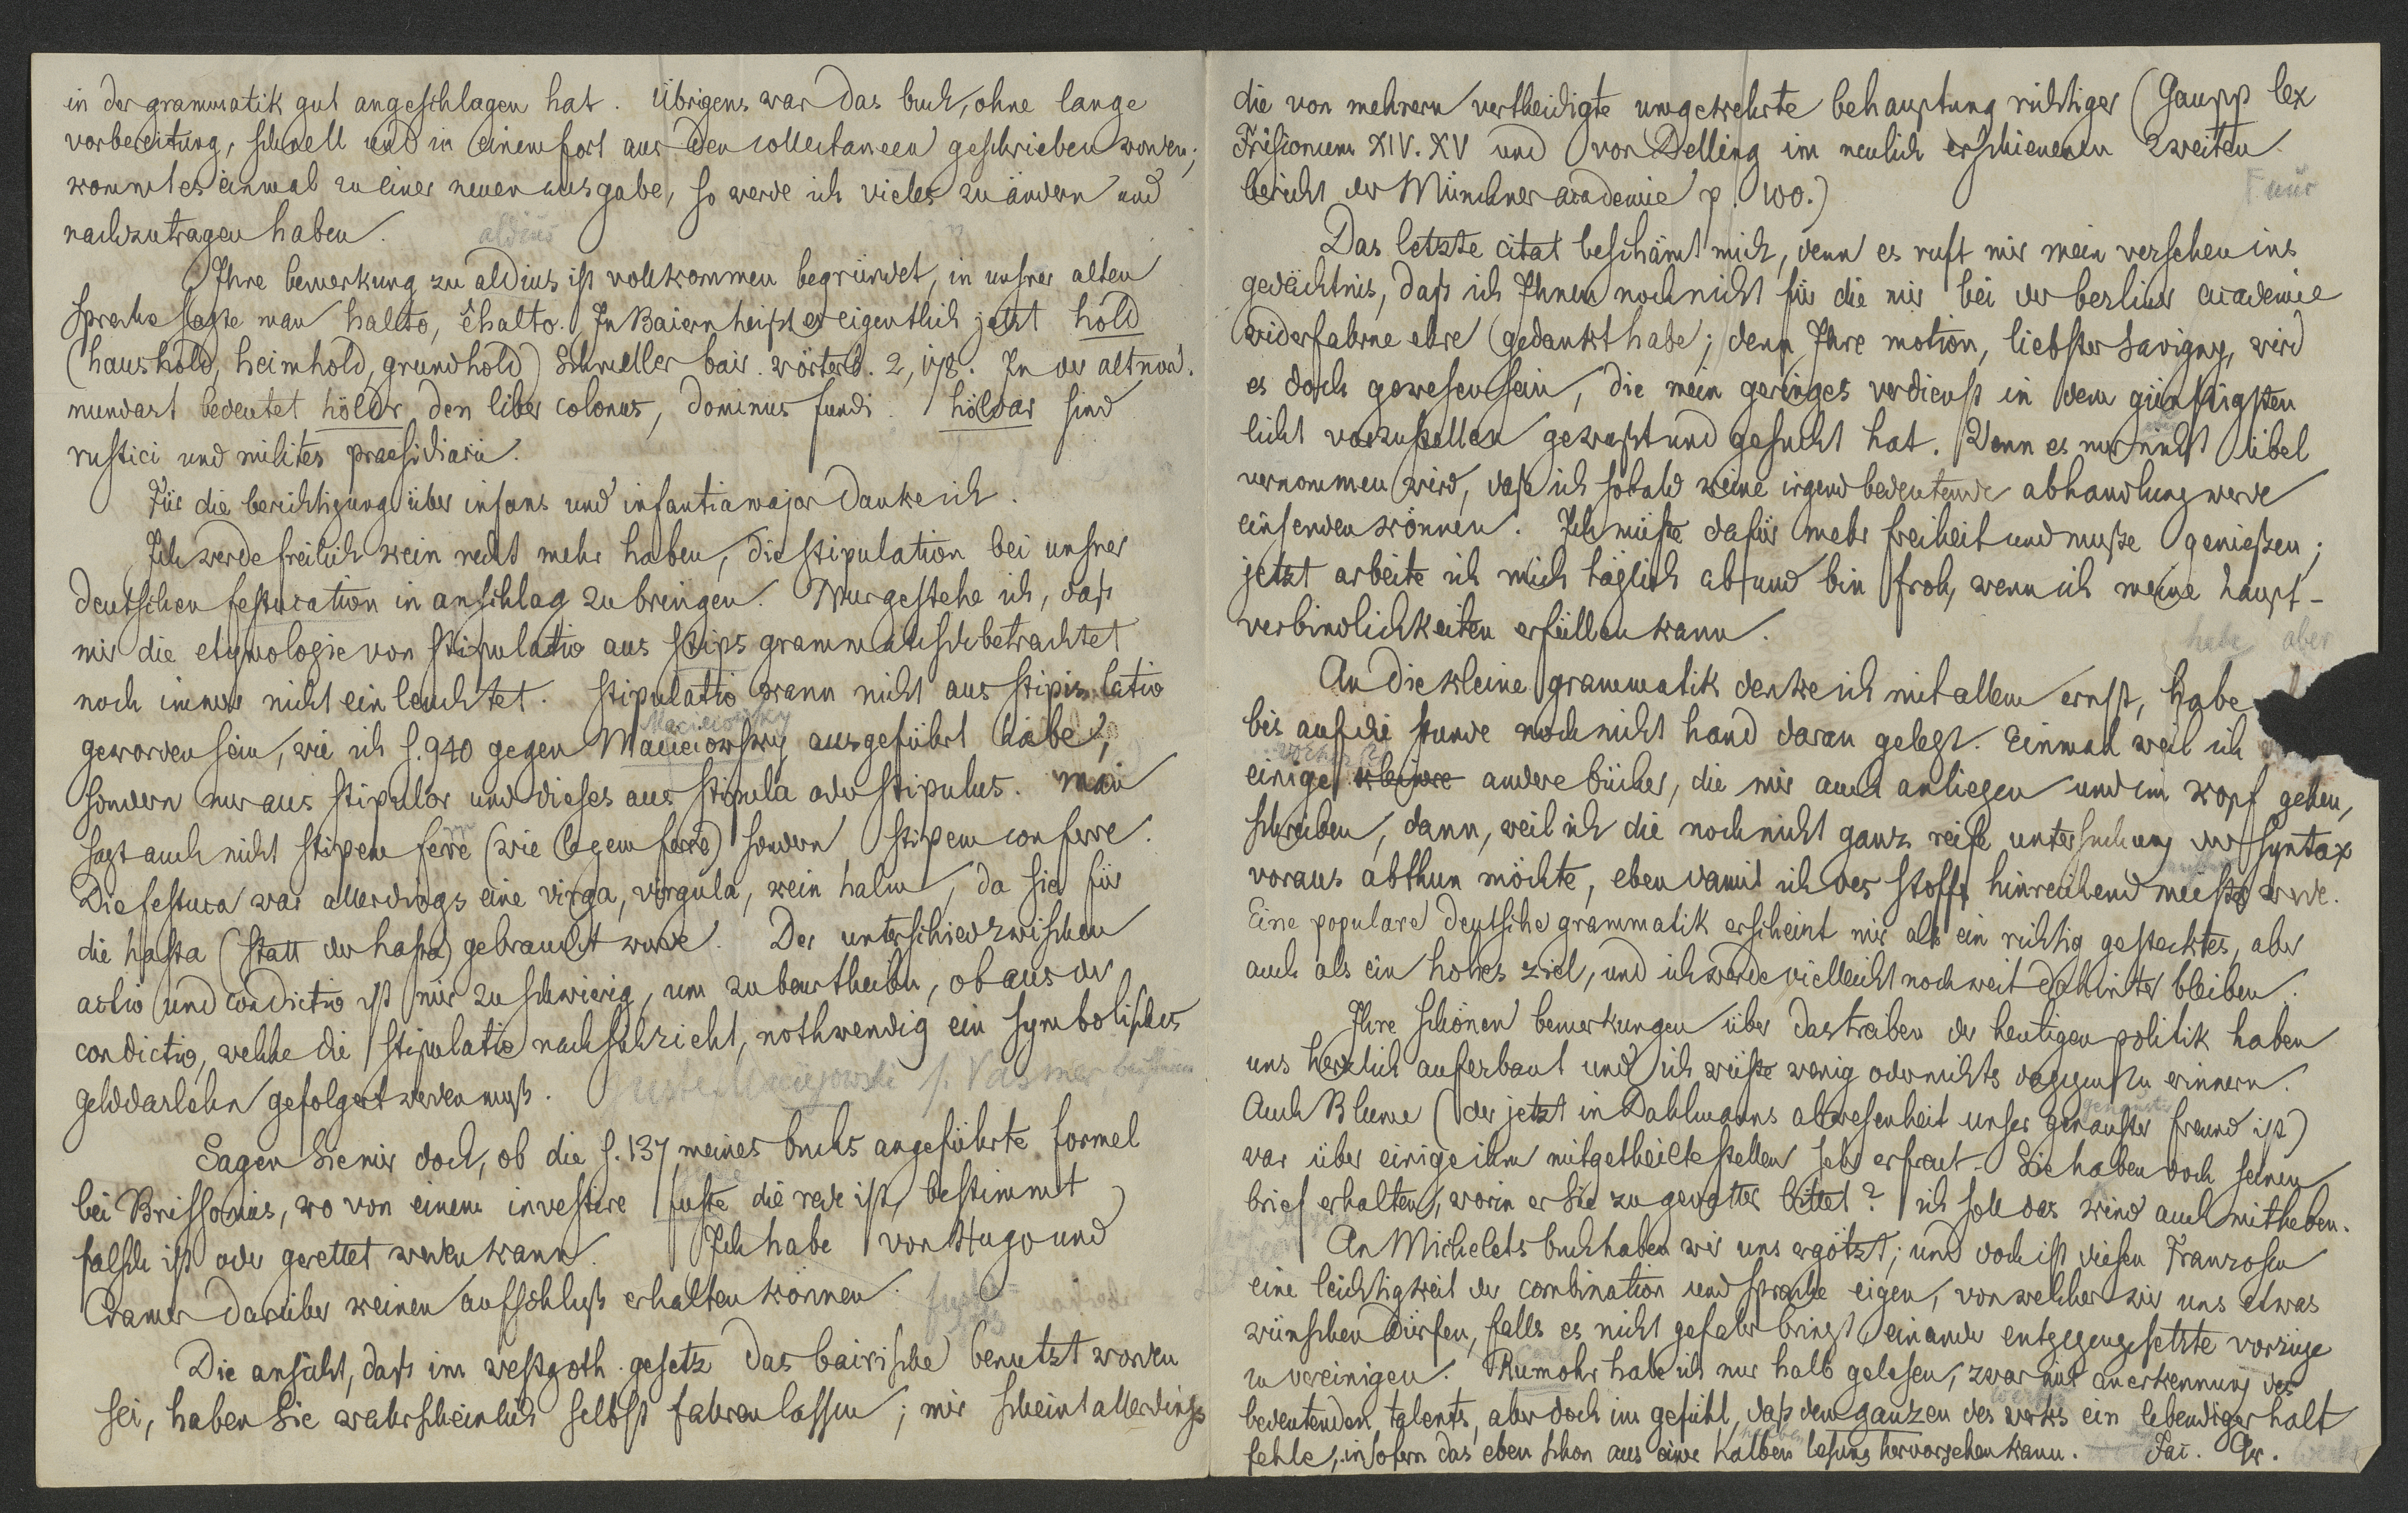 in der grammatik gut angeschlagen hat. Übrigens war das buch, ohne lange
vorbereitung, schnell und in einem fort aus den collectaneen geschrieben worden;
kommt es einmal zu einer neuen ausgabe, so werde ich vieles zu ändern und
nachzutragen haben.
aldius
Ihre bemerkung zu aldius ist vollkommen begründet, in unsrer alten
sprache sagte man halto, êhalto. In Baiern heißt er eigentlich jetzt hold
(haushold, heimhold, grundhold) Schmeller bair. wörterb. 2, 178. In der altnord.
mundart bedeutet höldr den liber colonus, dominus fundi. höldar sind
rustici und milites praesidiarii.
Für die berichtigung über infans und infantia major danke ich.
Ich werde freilich kein recht mehr haben, die stipulation bei unsrer
deutschen festucation in anschlag zu bringen. Nur gestehe ich, daß
mir die etymologie von stipulatio aus stips grammatisch betrachtet
noch immer nicht einleuchtet. stipulatio kann nicht aus stipis latio
Macieiowsky
geworden sein, wie ich s. 940 gegen Macieiowsky ausgeführt habe,
sondern nur aus stipulor und dieses aus stipula oder stipulus. man
sagt auch nicht stipem ferre (wie legem ferre) sondern stipem conferre.
Die festuca war allerdings eine virga, virgula, kein halm, da sie für
die hasta (statt der hasta) gebraucht wurde. Der unterschied zwischen
actio und condictio ist mir zu schwierig, um zu beurtheilen, ob aus der
condictio, welche die stipulatio nach sich zieht, nothwendig ein symbolisches
gelddarlehn gefolgert werden muß.
Maciejowski s. Vasmer
Sagen Sie mir doch, ob die s. 137 meines buchs angeführte formel
bei Brissonius, wo von einem investire fuste die rede ist, bestimmt
falsch ist oder gerettet werden kann. Ich habe von Hugo und
Cramer darüber keinen aufschluß erhalten können.
Die ansicht, daß im westgoth. gesetz das bairische benutzt worden
sei, haben Sie wahrscheinlich selbst fahren lassen; mir scheint allerdings
die von mehrern vertheidigte umgekehrte behauptung richtiger (Gaupp lex
Frisionum XIV. XV und von Delling im neulich erschienenen zweiten
bericht der Münchner academie p. 100.)
Das letzte citat beschämt mich, denn es ruft mir mein versehen ins
gedächtnis, daß ich Ihnen noch nicht für die mir bei der berliner academie
widerfahrne ehre gedankt habe; denn Ihre motion, liebster Savigny, wird
es doch gewesen sein, die mein geringes verdienst in dem günstigsten
licht vorzustellen gewußt und gesucht hat. Wenn es nur nicht übel
vernommen wird, daß ich sobald keine irgend bedeutende abhandlung werde
einsenden können. Ich müßte dafür mehr freiheit und muße genießen;
jetzt arbeite ich mich täglich ab und bin froh, wenn ich meine haupt-
verbindlichkeiten erfüllen kann.
habe aber
An die kleine grammatik denke ich mit allem ernst, habe
bis auf die stunde noch nicht hand daran gelegt. Einmal weil ich
einige kleinre andere bücher, die mir auch anliegen und im kopf gehen,
schreiben, dann, weil ich die noch nicht ganz reife untersuchung der syntax
voraus abthun möchte, eben damit ich des stoffs hinreichend meister werde.
Eine populare deutsche grammatik erscheint mir als ein richtig gestecktes, aber
auch als ein hohes ziel, und ich werde vielleicht noch weit dahinter bleiben.
Ihre schönen bemerkungen über das treiben der heutigen politik haben
uns herzlich auferbaut und ich wüßte wenig oder nichts dagegen zu erinnern.
Auch Blume (der jetzt in Dahlmanns abwesenheit unser genauster freund ist)
war über einige ihm mitgetheilte stellen sehr erfreut. Sie haben doch seinen
brief erhalten, worin er Sie zu gevatter bittet? ich soll das kind auch mitheben.
An Michelets buch haben wir uns ergötzt; und doch ist diesen Franzosen
eine leichtigkeit der combination und sprache eigen, von welcher wir uns etwas
wünschen dürfen, falls es nicht gefahr bringt einander entgegengesetzte vorzüge
zu vereinigen. Rumohr habe ich nur halb gelesen, zwar mit anerkennung des
bedeutenden talents, aber doch im gefühl, daß dem ganzen des werks ein lebendiger halt
fehle, insofern das eben schon aus einer halben lesung hervorgehen kann. Jac. Gr.